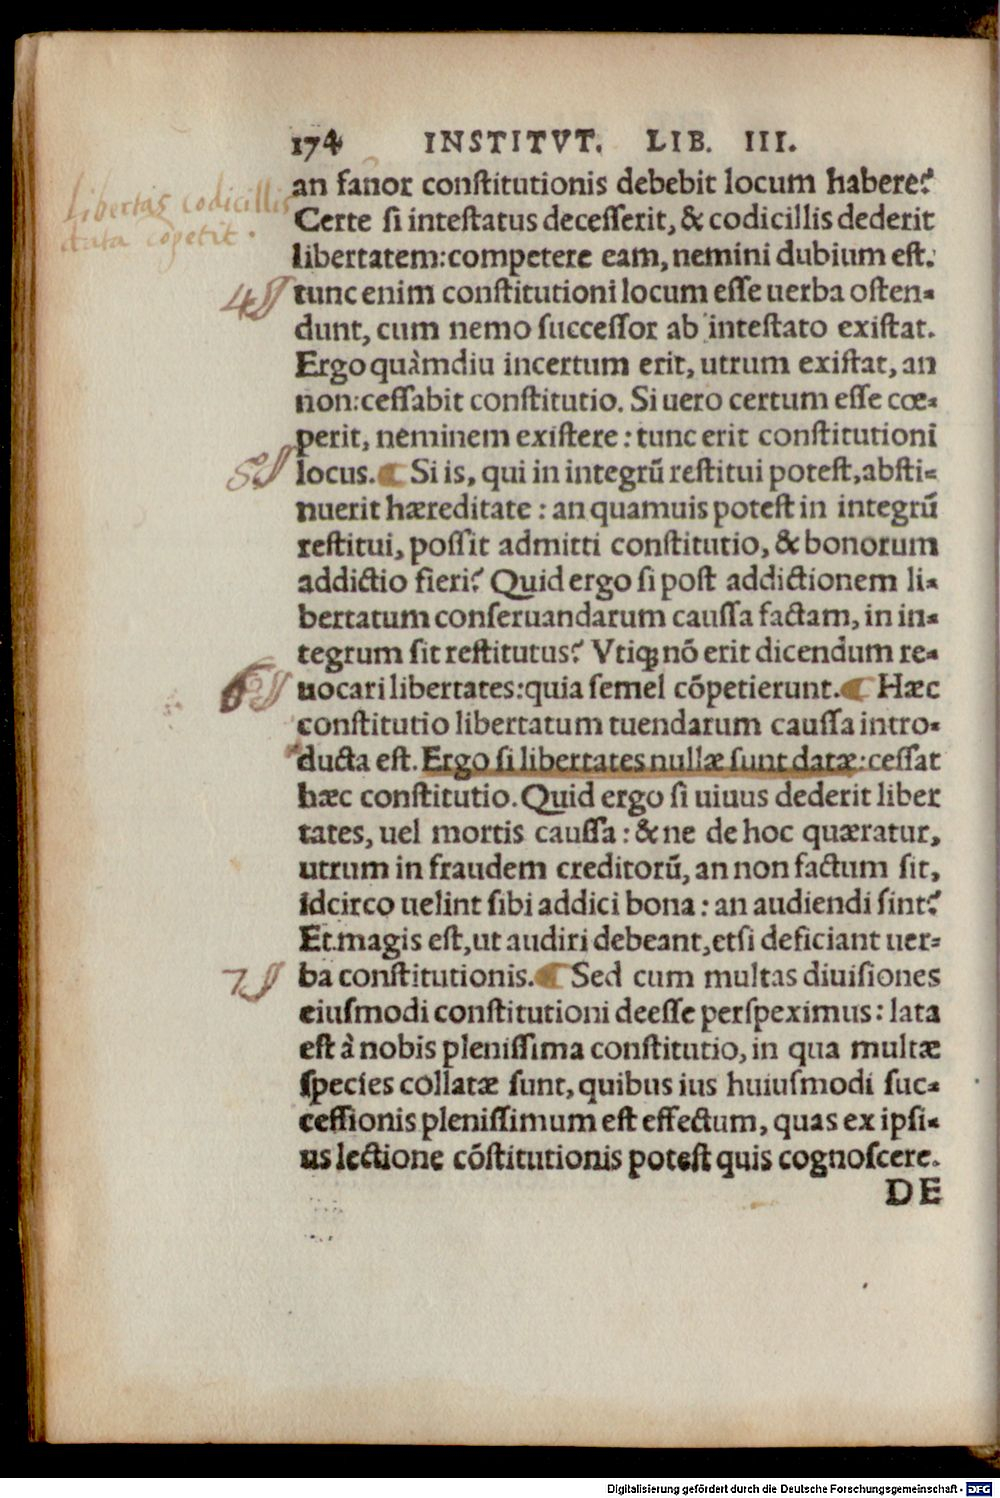 174 INSTITVT. LIB. III.
an fauor constitutionis debebit locum habere?
Libertas codicillis
data cōpetit.
Certe si intestatus decesserit, & codicillis dederit
libertatem:competere eam, nemini dubium est.
4
tunc enim constitutioni locum esse uerba osten-
dunt, cum nemo successor ab intestato existat.
Ergo quàmdiu incertum erit, utrum existat, an
non:cessabit constitutio. Si uero certum esse cœ-
perit, neminem existere: tunc erit constitutioni
5
locus. ¶ Si is, qui in integrū restitui potest, absti-
nuerit hæreditate: an quamuis potest in integrū
restitui, possit admitti constitutio, & bonorum
addictio fieri? Quid ergo si post addictionem li-
bertatum conseruandarum caussa factam, in in-
tegrum sit restitutus? Vtiqꝫ nō erit dicendum re-
6
uocari libertates:quia semel cōpetierunt. ¶ Hæc
constitutio libertatum tuendarum caussa intro-
ducta est. Ergo si libertates nullæ sunt datæ:cessat
hæc constitutio. Quid ergo si uiuus dederit liber
tates, uel mortis caussa: & ne de hoc quæratur,
utrum in fraudem creditorū, an non factum sit,
idcirco uelint sibi addici bona: an audiendi sint?
Et magis est, ut audiri debeant, etsi deficiant uer-
7
ba constitutionis. ¶ Sed cum multas diuisiones
eiusmodi constitutioni deesse perspeximus: lata
est à nobis plenissima constitutio, in qua multæ
species collatæ sunt, quibus ius huiusmodi suc-
cessionis plenissimum est effectum, quas ex ipsi-
us lectione cōstitutionis potest quis cognoscere.
DE
Digitalisierung gefördert durch die Deutsche Forschungsgemeinschaft - DFG